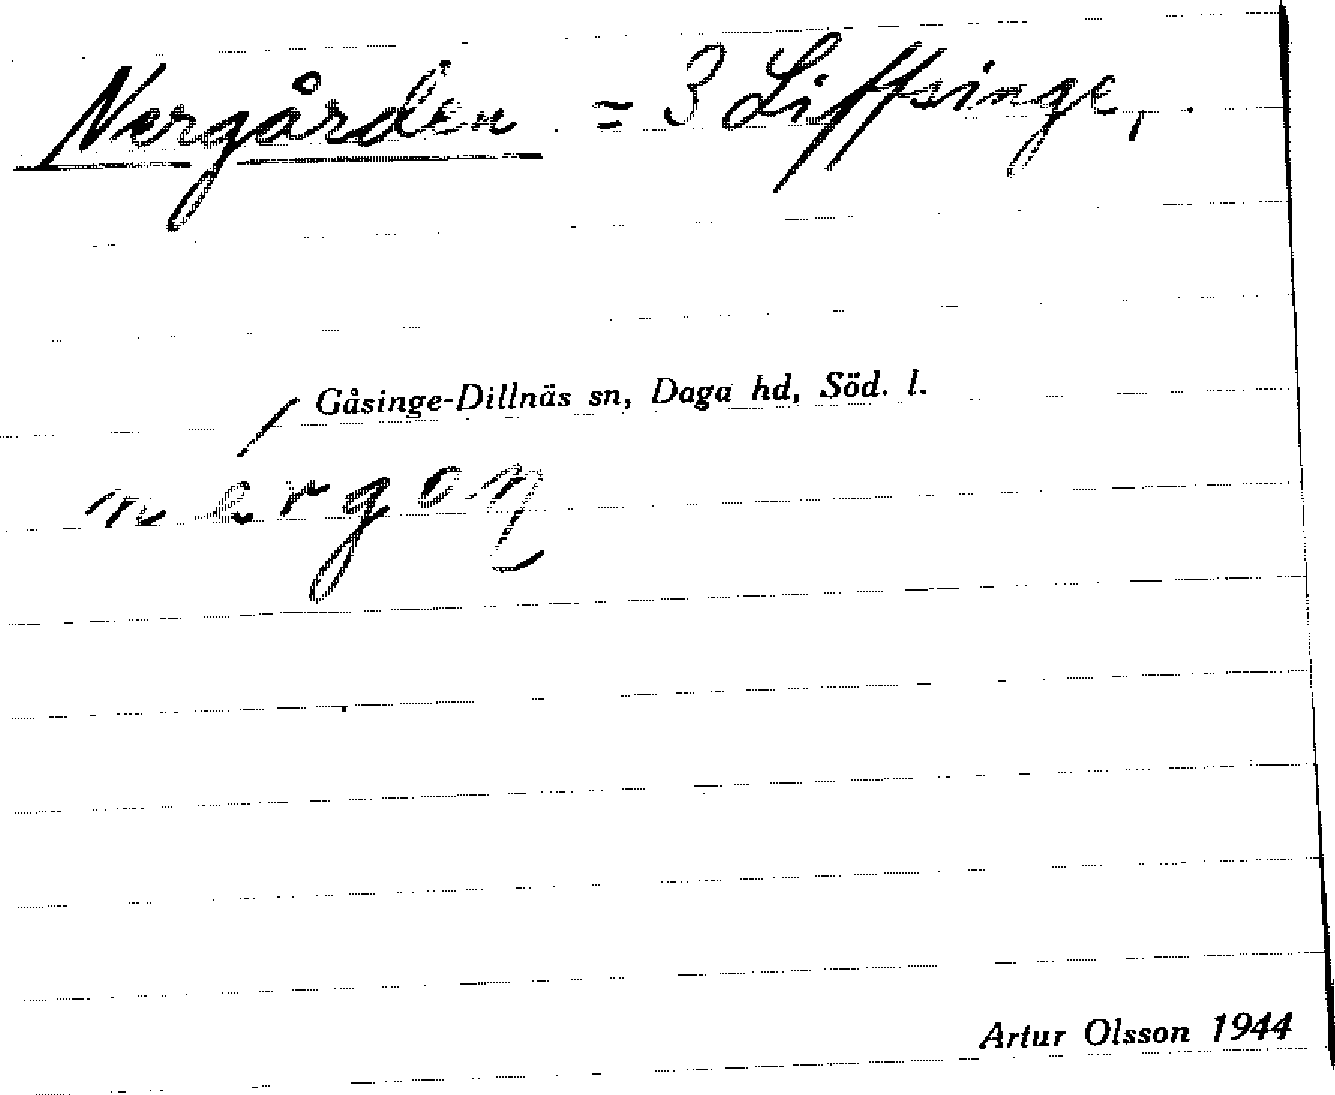 Nergården = 3 Liffsinge,
Gåsinge-Dillnäs sn, Daga hd, Söd. l.
Artur Olsson 1944